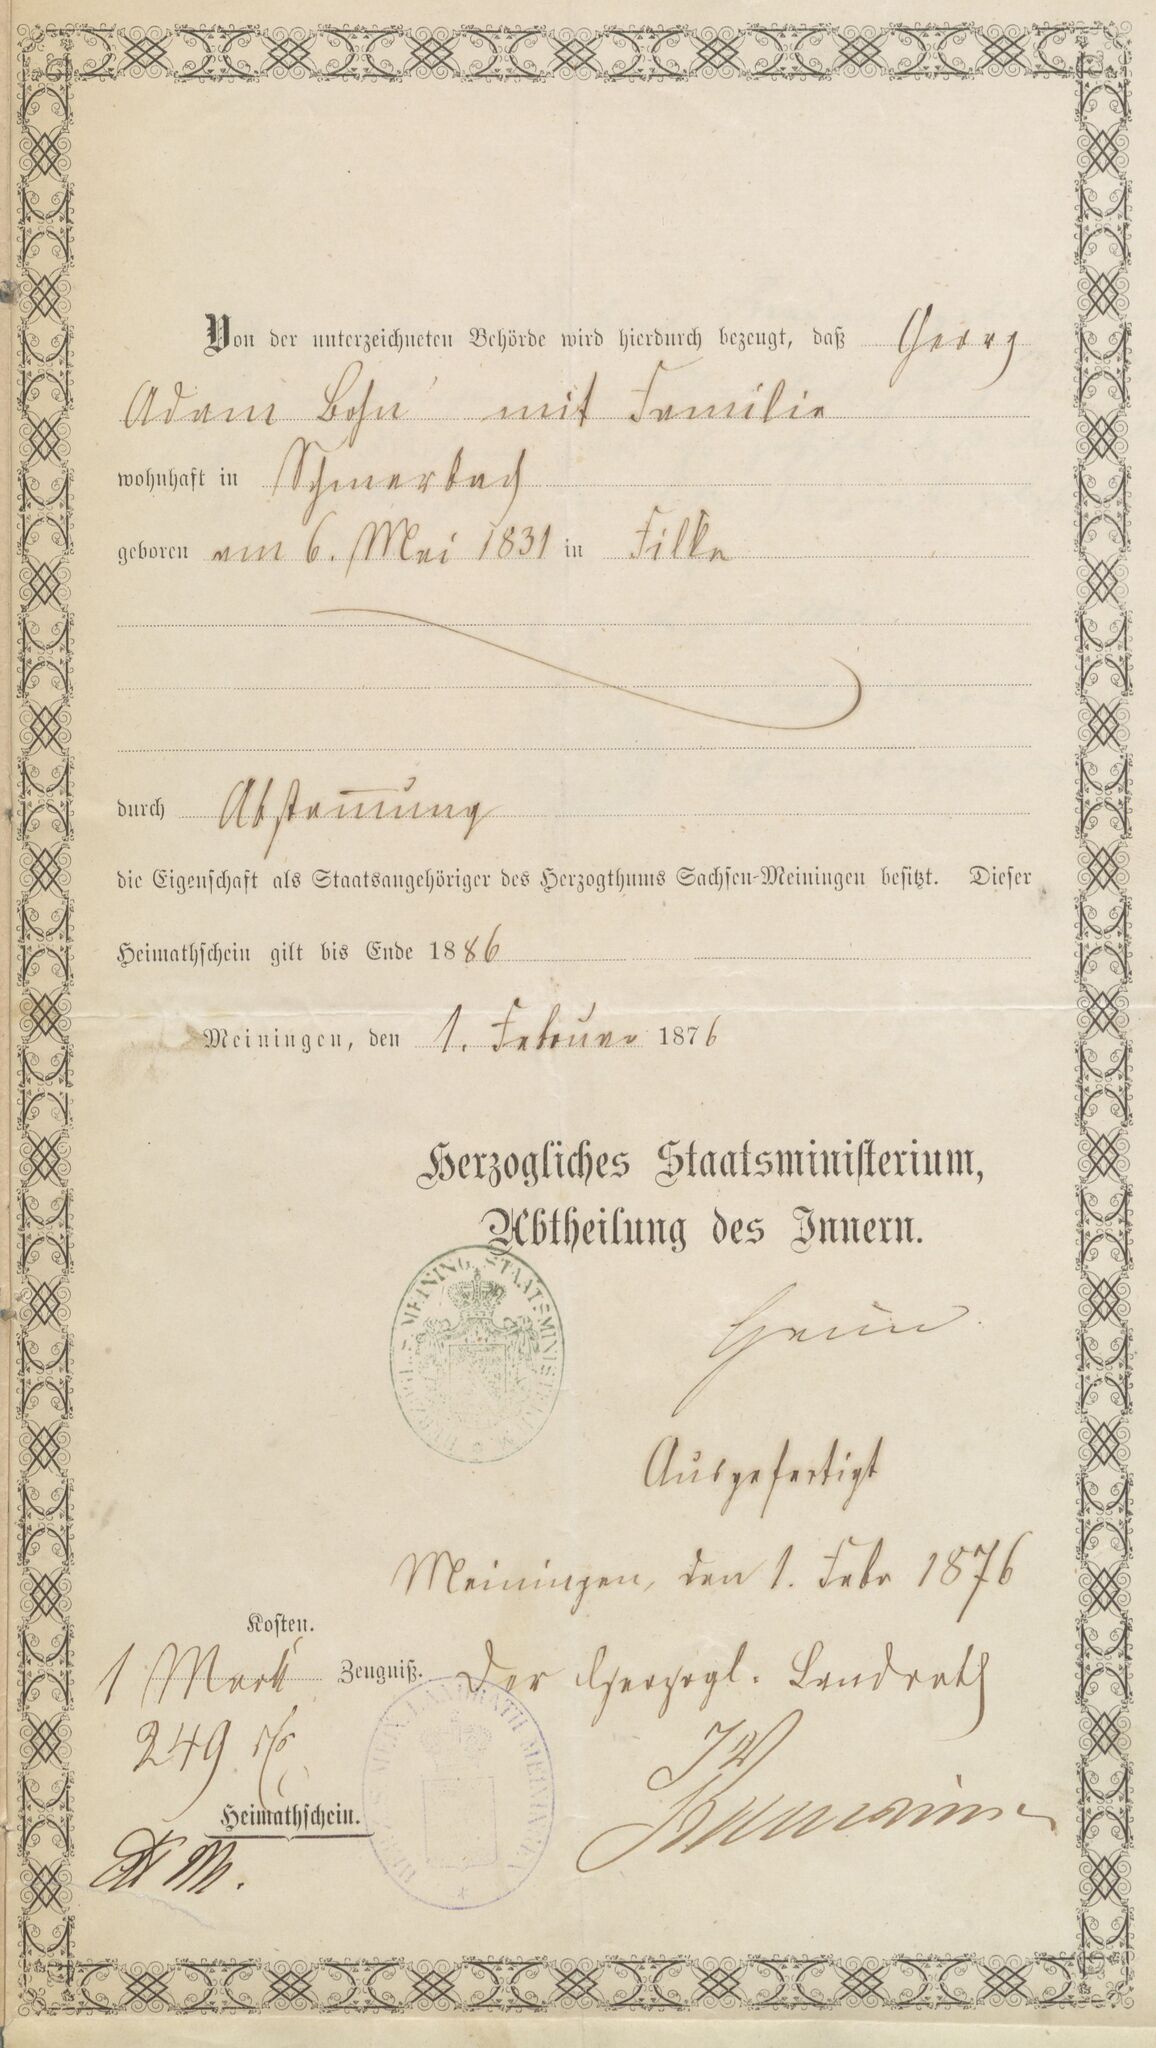 Von der unterzeichneten Behörde wird hierdurch bezeugt, daß Georg
Adam Bohn mit Familie
wohnhaft in Schmerbach
geboren am 6. Mai 1831 in Filke
durch Abstam̅ung
die Eigenschaft als Staatsangehöriger des Herzogthums Sachsen-Meiningen besitzt. Dieser
Heimathschein gilt bis Ende 1886
Meiningen, den 1. Februar 1876
Herzogliches Staatsministerium,
Abtheilung des Innern.
HERZOGL. S. MEINING. STAATSMINISTERIUM
Ausgefertigt
Meiningen, den 1. Febr 1876
Kosten.
1 Mark Zeugniß.
Der Herzogl. Landrath
249
IV
Heimathschein.
LANDRATH MEININGEN